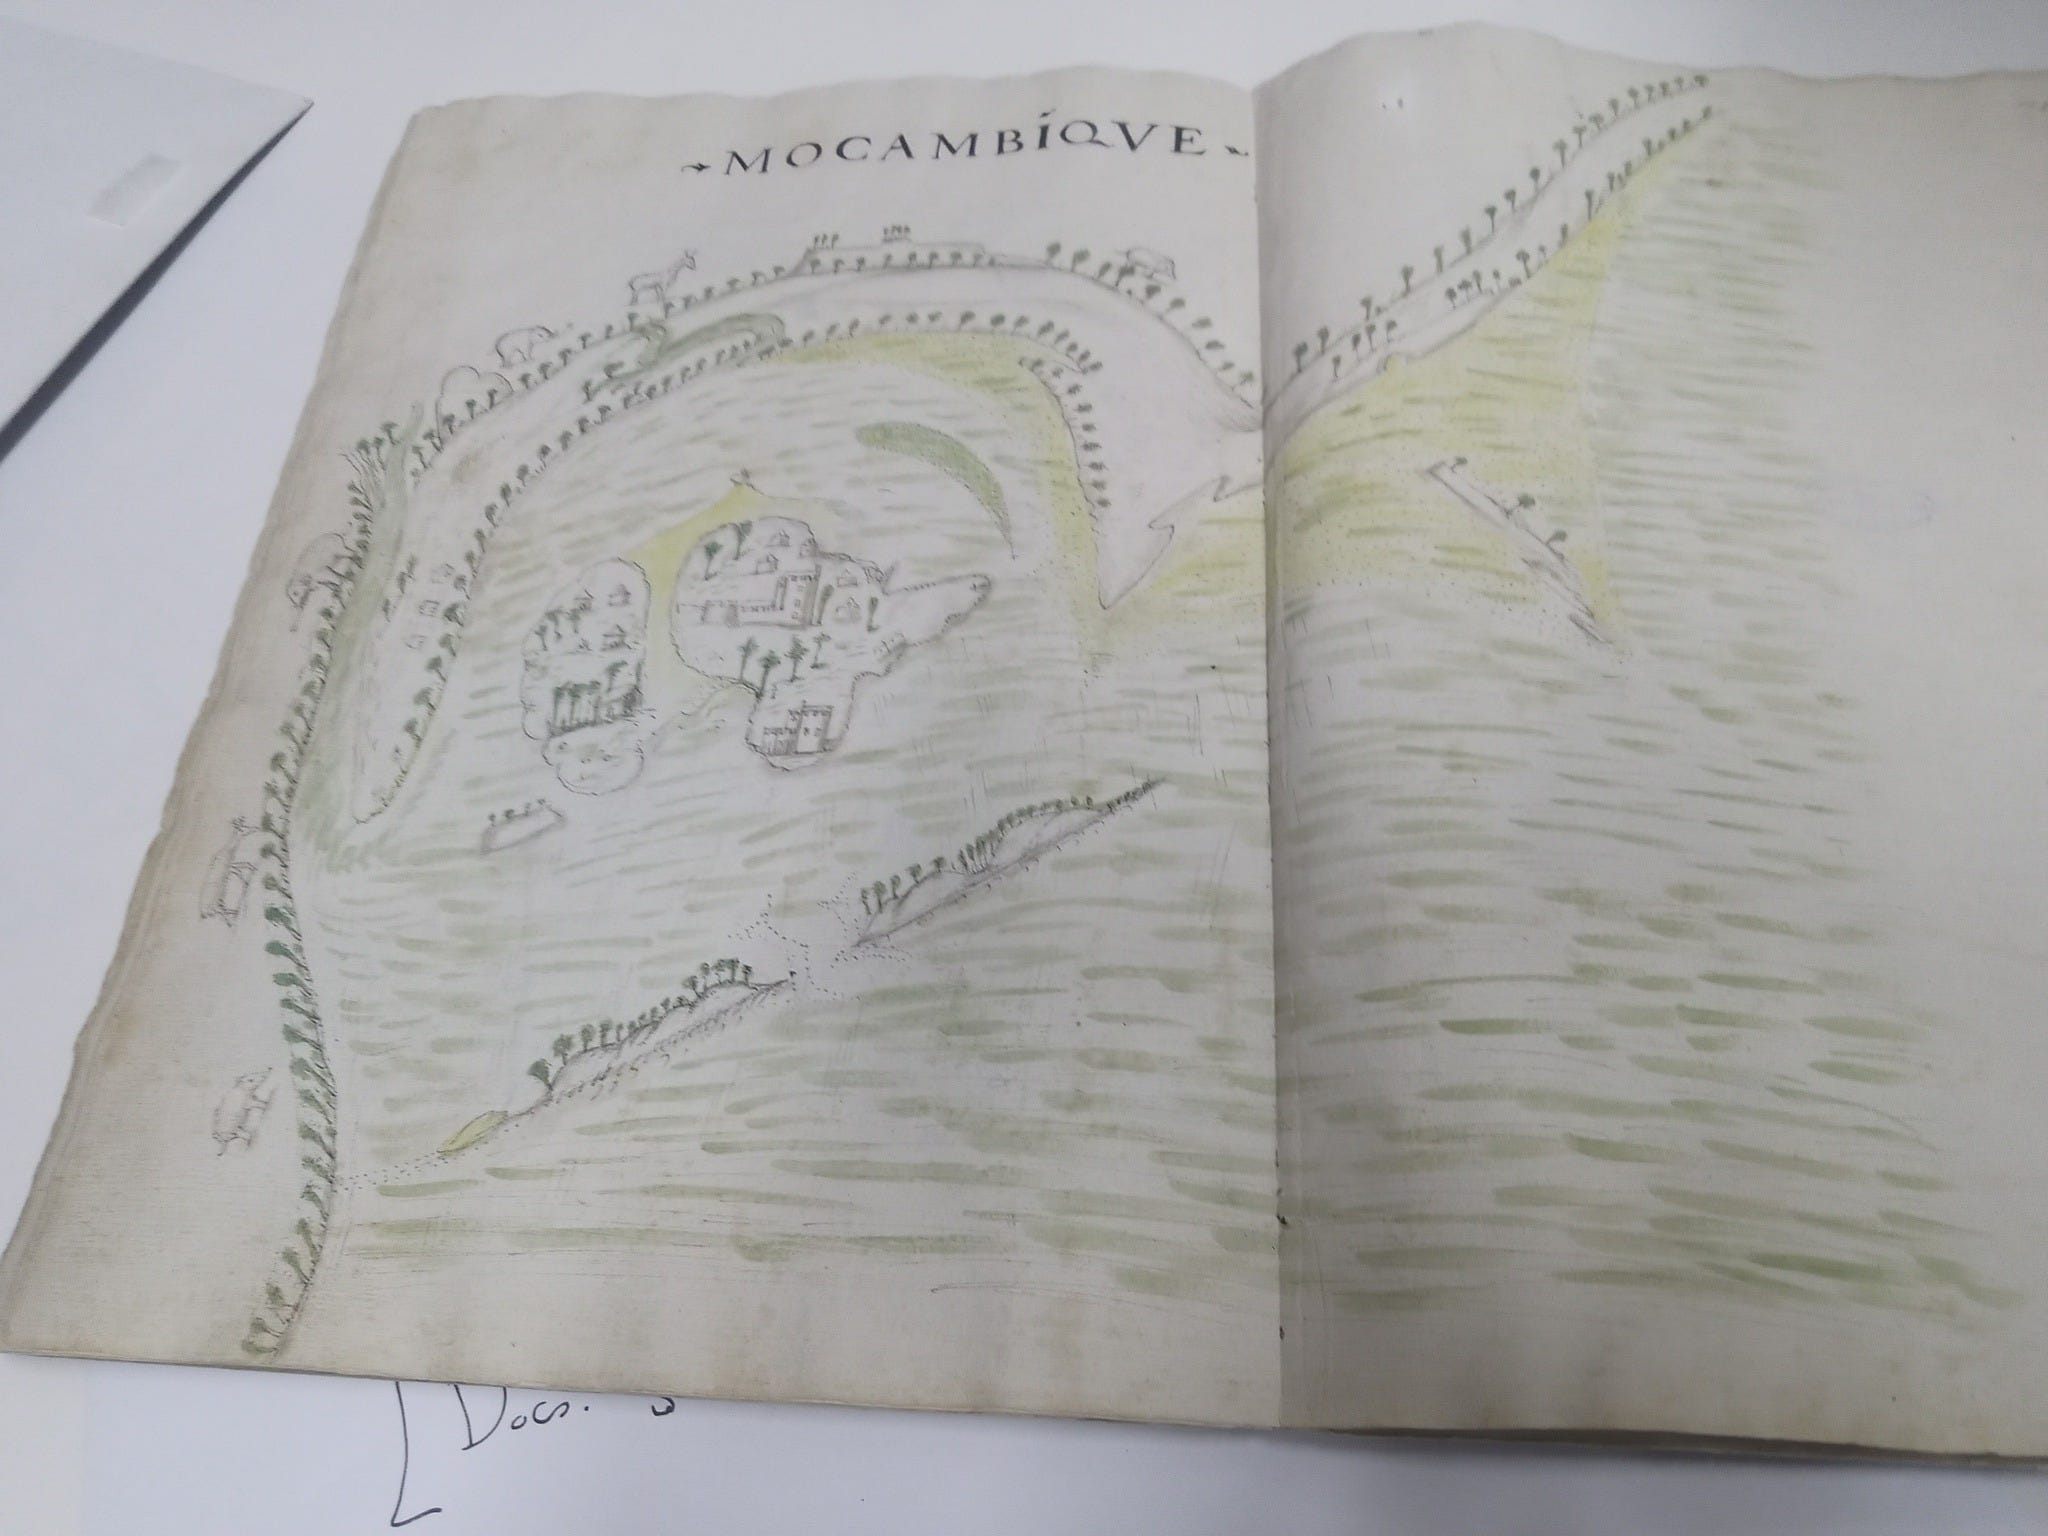 MOCAMBÍQVE
[Docs.